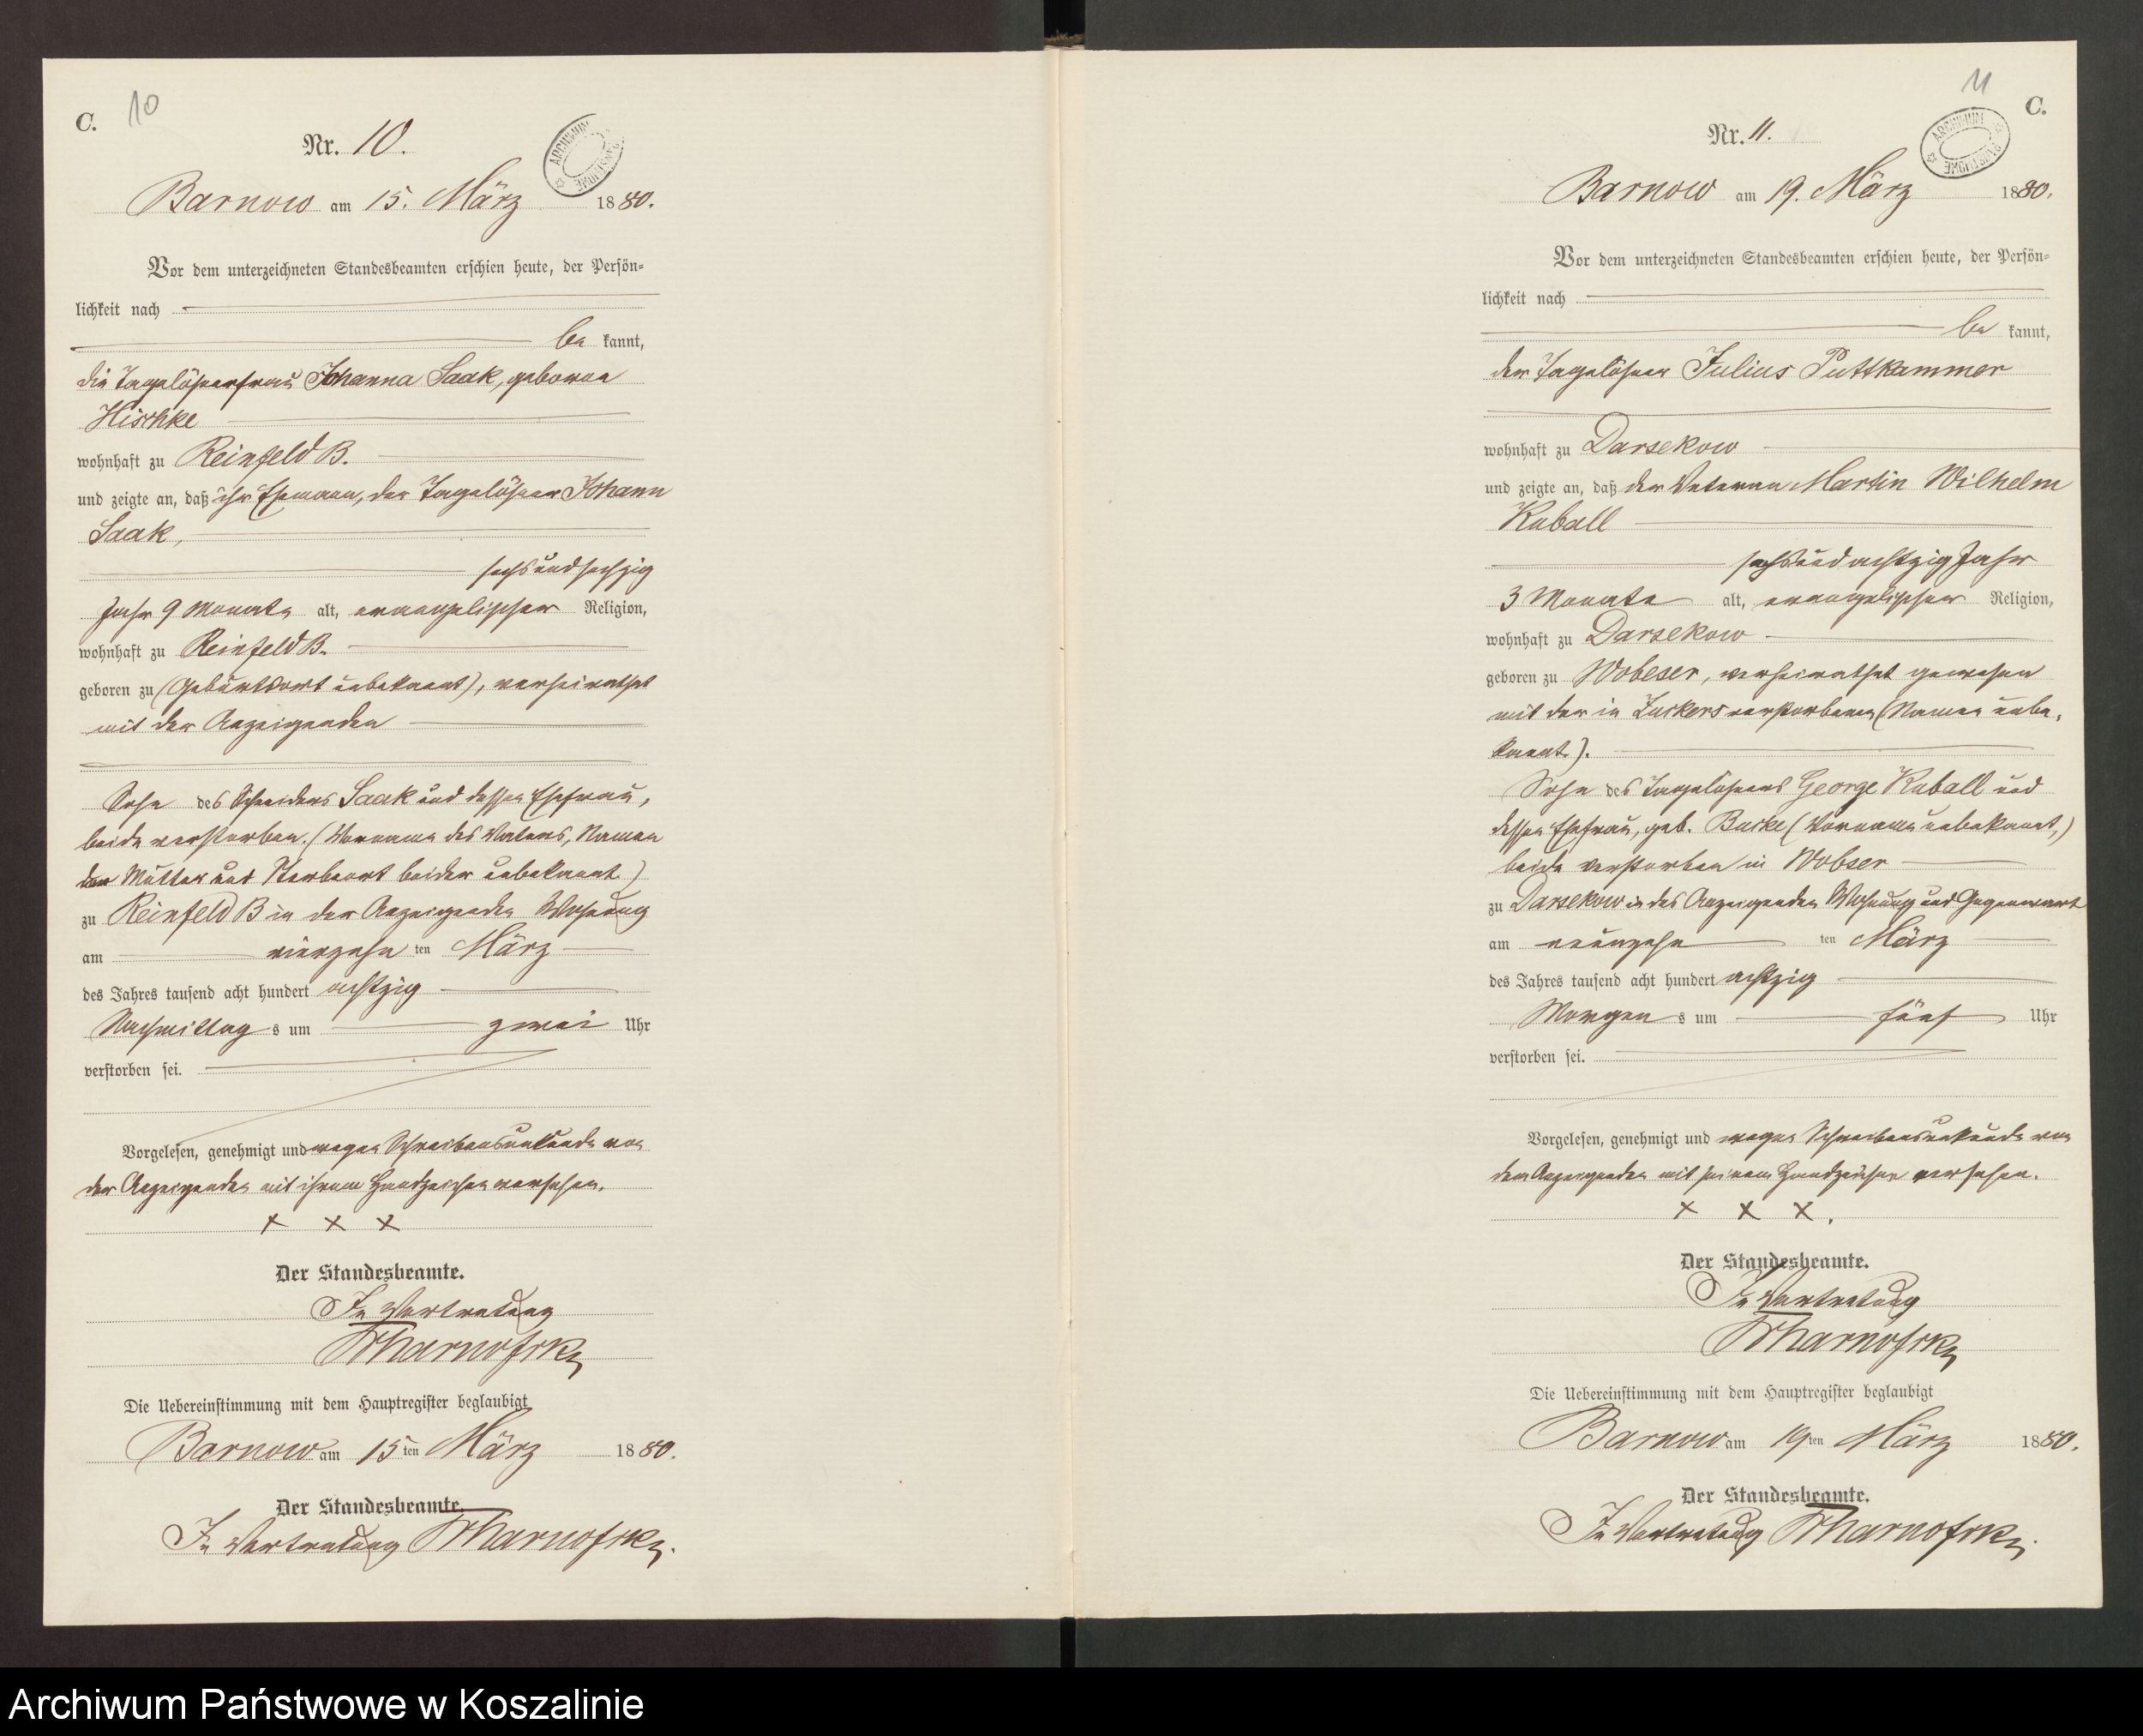 C.
10
Nr. 10.
ARCHIWUM PAŃSTWOWE
Barnow am 15. März 1880.
Vor dem unterzeichneten Standesbeamten erschien heute, der Persön-
lichkeit nach
be kannt,
die Tagelöhnerfrau Johanna Saak, geborene
Hischke
wohnhaft zu Reinfeld B.
und zeigte an, daß ihr Ehemann, der Tagelöhner Johann
Saak,
sechsundsechzig
Jahr 9 Monate alt, evangelischer Religion,
wohnhaft zu Reinfeld B.
geboren zu (Geburtsort unbekannt), verheirathet
mit der Anzeigenden
Sohn des Schneiders Saak und dessen Ehefrau,
beide verstorben. (Vorname des Vaters, Namen
der Mutter und Sterbeort beider unbekannt)
zu Reinfeld B in der Anzeigenden Wohnung
am vierzehn ten März
des Jahres tausend acht hundert achtzig
Nachmittag s um zwei Uhr
verstorben sei.
Vorgelesen, genehmigt und wegen Schreibensunkunde von
der Anzeigenden mit ihrem Handzeichen versehen.
x x x
Der Standesbeamte.
In Vertretung
Die Uebereinstimmung mit dem Hauptregister beglaubigt
Barnow am 15ten März 1880.
Der Standesbeamte.
In Vertretung
11
C.
Nr. 11.
ARCHIWUM PAŃSTWOWE
Barnow am 19. März 1880.
Vor dem unterzeichneten Standesbeamten erschien heute, der Persön-
lichkeit nach
be kannt,
der Tagelöhner Julius Puttkammer
wohnhaft zu Darsekow
und zeigte an, daß der Veteran Martin Wilhelm
Kuball
sechsundachtzig Jahr
3 Monate alt, evangelischer Religion,
wohnhaft zu Darsekow
geboren zu Wobeser, verheirathet gewesen
mit der in Zuckers verstorbenen (Namen unbe-
kannt).
Sohn des Tagelöhners George Kuball und
dessen Ehefrau, geb. Buske (Vorname unbekannt,)
beide verstorben in Wobser
zu Darsekow in des Anzeigenden Wohnung und Gegenwart
am neunzehn ten März
des Jahres tausend acht hundert achtzig
Morgen s um fünf Uhr
verstorben sei.
Vorgelesen, genehmigt und wegen Schreibensunkunde von
dem Anzeigenden mit seinem Handzeichen versehen.
x x x.
Der Standesbeamte.
In Vertretung
Die Uebereinstimmung mit dem Hauptregister beglaubigt
Barnow am 19ten März 1880.
Der Standesbeamte.
In Vertretung
Archiwum Państwowe w Koszalinie